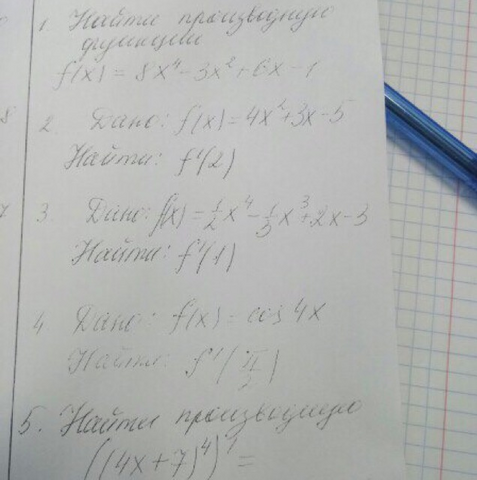 1 Найти производную
функции
f(x) = 8x⁴ - 3x² + 6x - 1
2. Дано: f(x) = 4x² + 3x - 5
Найти: f'(2)
3. Дано: f(x) = 1/2 x⁴ - 1/3 x³ + 2x - 3
Найти: f'(1)
4 Дано: f(x) = cos 4x
Найти: f'(π/2)
5. Найти производную
((4x+7)⁴)' =